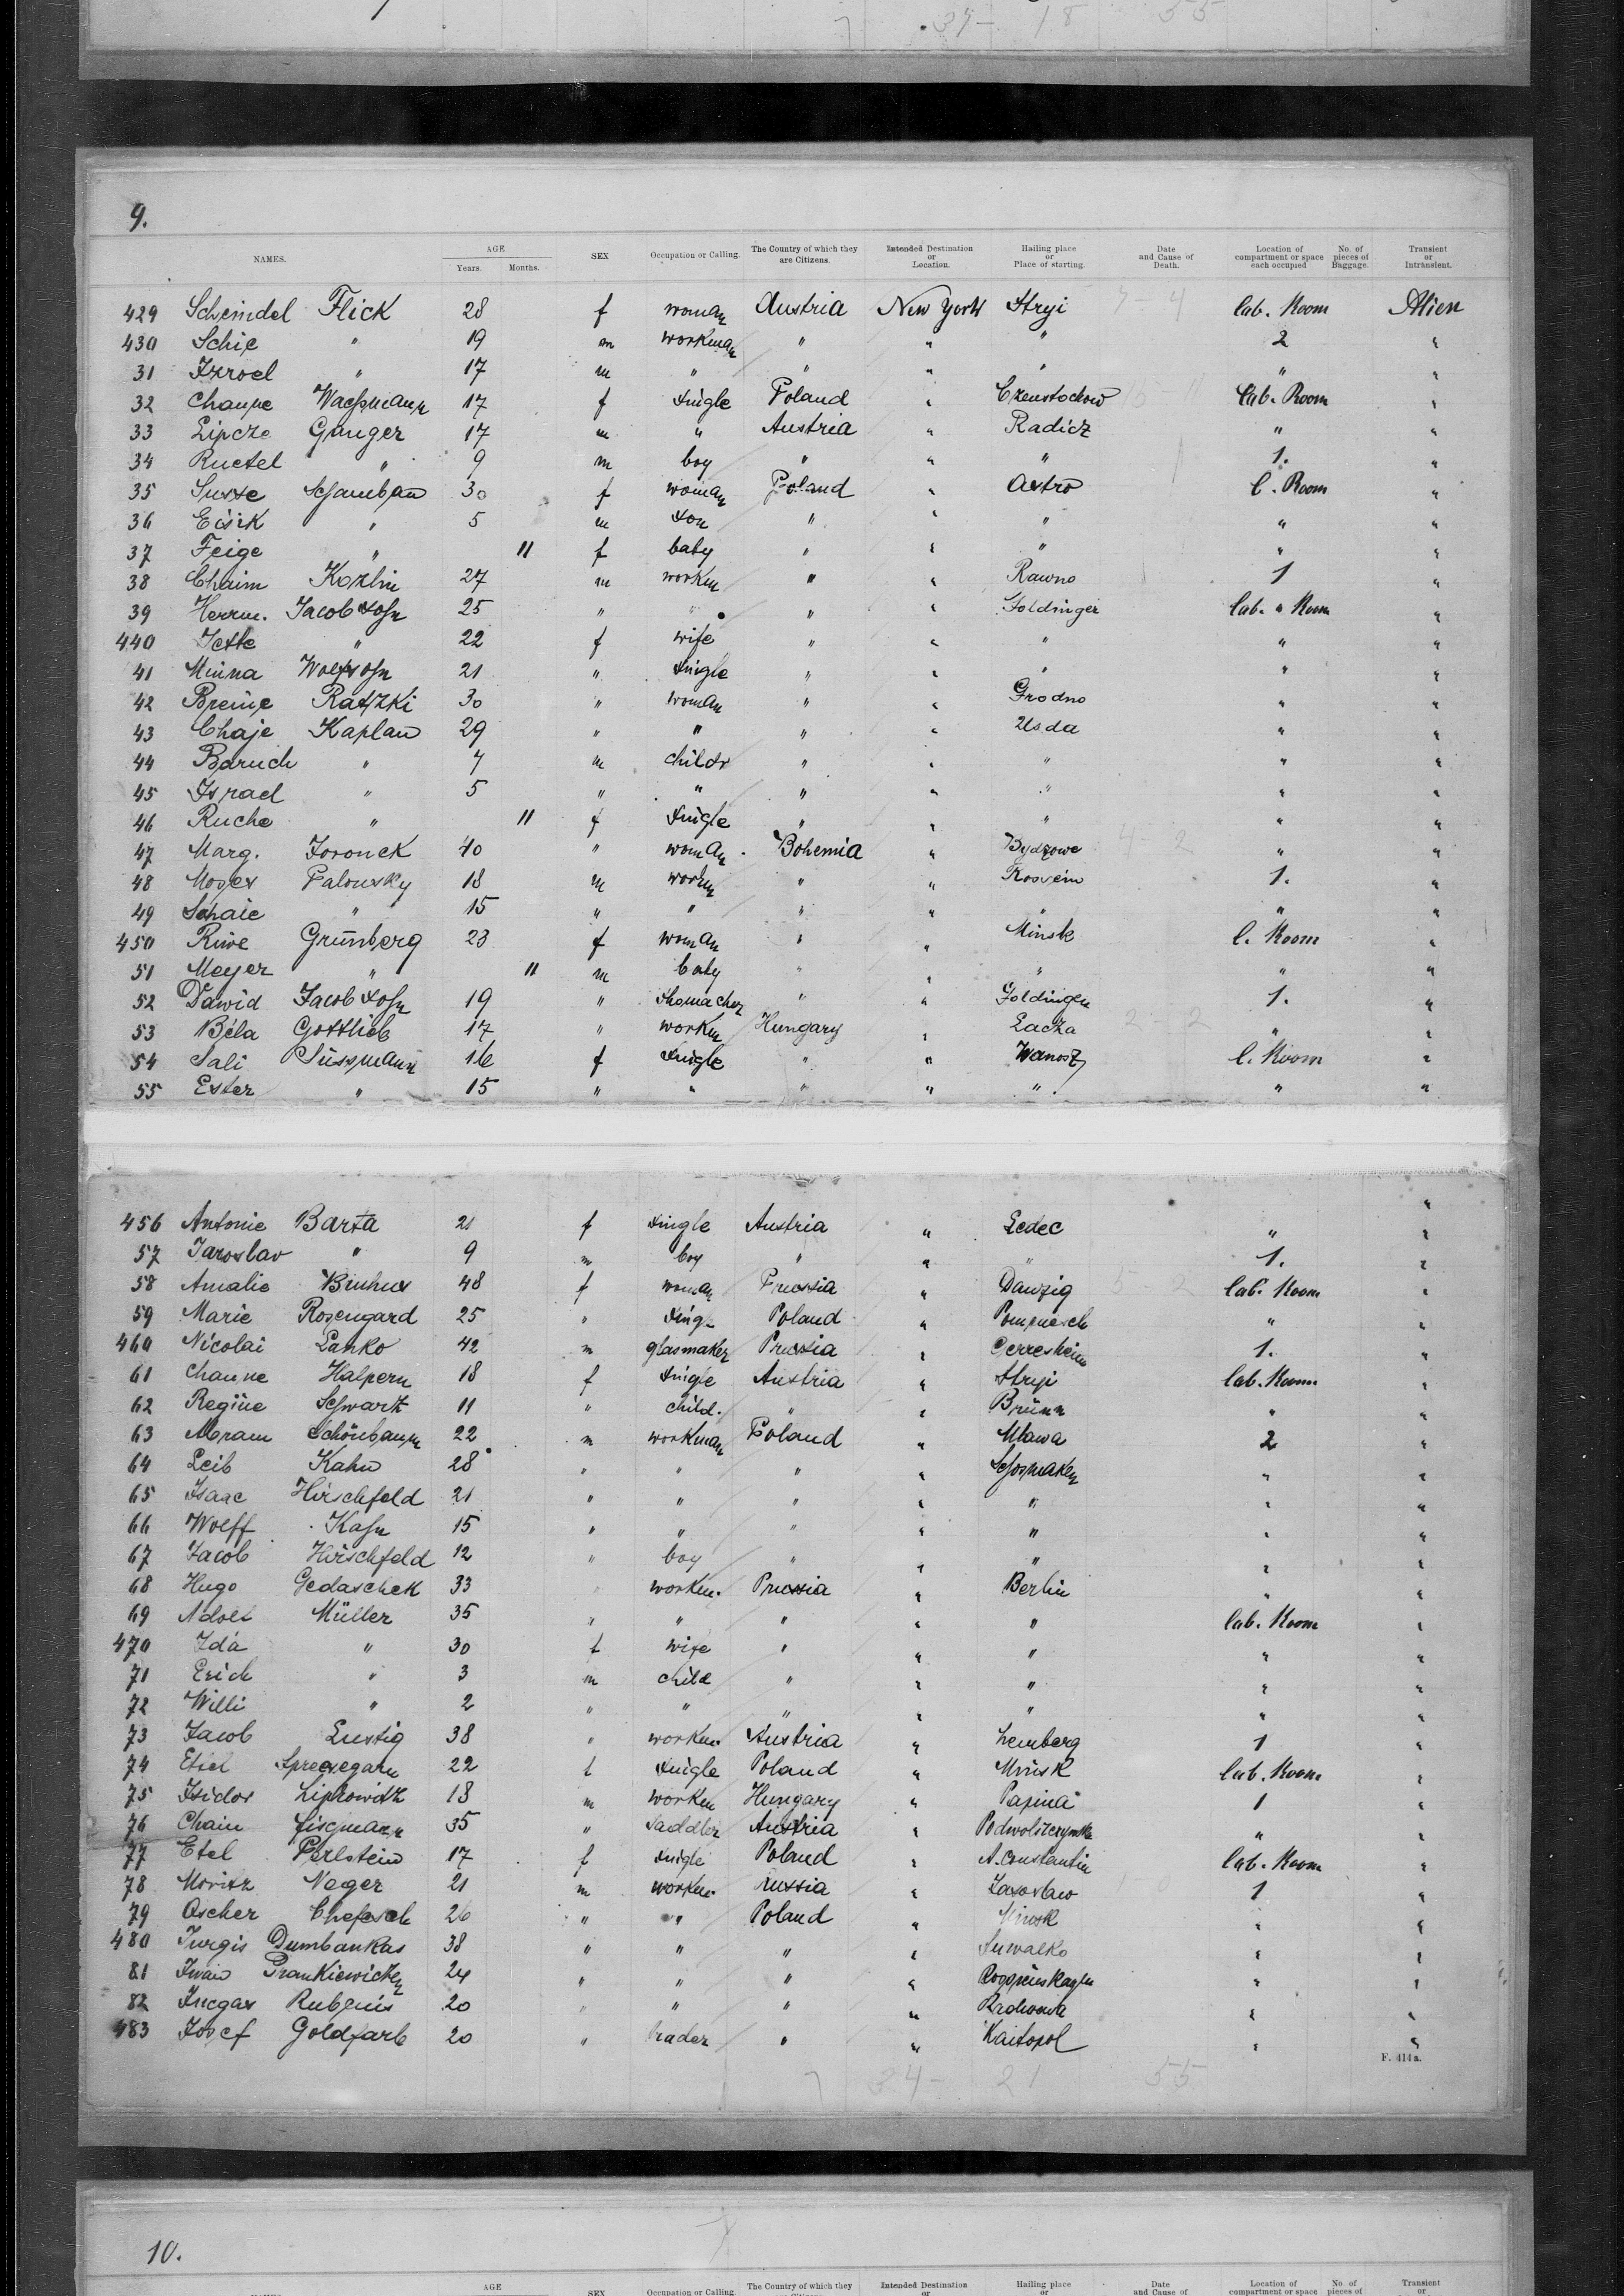 37- 18 55
9.
NAMES. AGE Years. Months. SEX Occupation or Calling. The Country of which they are Citizens. Intended Destination or Location. Hailing place or Place of starting. Date and Cause of Death. Location of compartment or space each occupied No. of pieces of Baggage. Transient or Intransient.
429 Scheindel Flick 28 f woman Austria New York Stryi 7-4 Cab. Room Alien
430 Schie " 19 m workman " " " 2 "
31 Izroel " 17 m " " " " " "
32 Chaune Wachsmann 17 f single Poland " Czenstochow Cab. Room "
33 Lipcze Ganger 17 m " Austria " Radicz " "
34 Ructel " 9 m boy " " " 1. "
35 Susse 30 f woman Poland " Ostro C. Room "
36 Eisik " 5 m son " " " " "
37 Feige " 11 f baby " " " " "
38 Chaim Kozlin 27 m workm " " Rawno 1 "
39 Herrm. Jacobsohn 25 " " " " Goldingen Cab. " Room "
440 Jette " 22 f wife " " " " "
41 Minna Wolfsohn 21 " single " " " " "
42 Breine Ratzki 30 " woman " " Grodno " "
43 Chaje Kaplan 29 " " " " Usda " "
44 Baruch " 7 m childr " " " " "
45 Israel " 5 " " " " " " "
46 Ruche " 11 f single " " " " "
47 Marg. Joronek 40 " woman Bohemia " Bydzowe 4-2 " "
48 Moses Palousky 18 m workm " " 1. "
49 Schaie " 15 " " " " " " "
450 Riwe Grünberg 23 f woman " " Minsk C. Room "
51 Meyer " 11 m baby " " " " "
52 Dawid Jacobsohn 19 " shomacher " " Goldingen 1. "
53 Béla Gottlieb 17 " workm Hungary " Lacza 2-2 " "
54 Sali Süssmann 16 f single " " Wanosz C. Room "
55 Ester " 15 " " " " " " "
456 Antonie Barta 21 f single Austria " Ledec " "
57 Jaroslav " 9 m boy " " " 1. "
58 Amalie 48 f woman Prussia " Danzig 5-2 Cab. Room "
59 Marie Rosengard 25 " sing. Poland " " "
460 Nicolai Lanko 42 m glasmaker Prussia " Gerresheim 1. "
61 Chaune Halpern 18 f single Austria " Stryi Cab. Room "
62 Regine Schwartz 11 " child. " " Brünn " "
63 Abram Schönbaum 22 m workman Poland " Mlawa 2 "
64 Leib Kahn 28 " " " " " "
65 Isaac Hirschfeld 21 " " " " " " "
66 Wolff Kahn 15 " " " " " " "
67 Jacob Hirschfeld 12 " boy " " " " "
68 Hugo Gedaschek 33 " workm. Prussia " Berlin " "
69 Adolf Müller 35 " " " " " Cab. Room "
470 Ida " 30 f wife " " " " "
71 Erich " 3 m child " " " " "
72 Willi " 2 " " " " " " "
73 Jacob Lustig 38 " workm Austria " Lemberg 1 "
74 Etiel 22 f single Poland " Minsk Cab. Room "
75 Isidor Lipkowitz 18 m workm Hungary " 1 "
76 Chaim Fischmann 35 " saddler Austria " " "
77 Etel Perlstein 17 f single Poland " A. Constantin Cab. Room "
78 Moritz Neger 21 m workm. Russia " Zasoslaw 1 "
79 Oscher 26 " " Poland " Minsk " "
480 Jurgis Dumbankas 38 " " " " Suwalko " "
81 Iwan 24 " " " " " "
82 Rubenis 20 " " " " " "
483 Josef Goldfarb 20 " trader " " Kaitopol " "
F. 414a.
34- 21 55
10.
AGE SEX Occupation or Calling. The Country of which they Intended Destination or Hailing place or Date and Cause of Location of compartment or space No. of pieces of Transient or